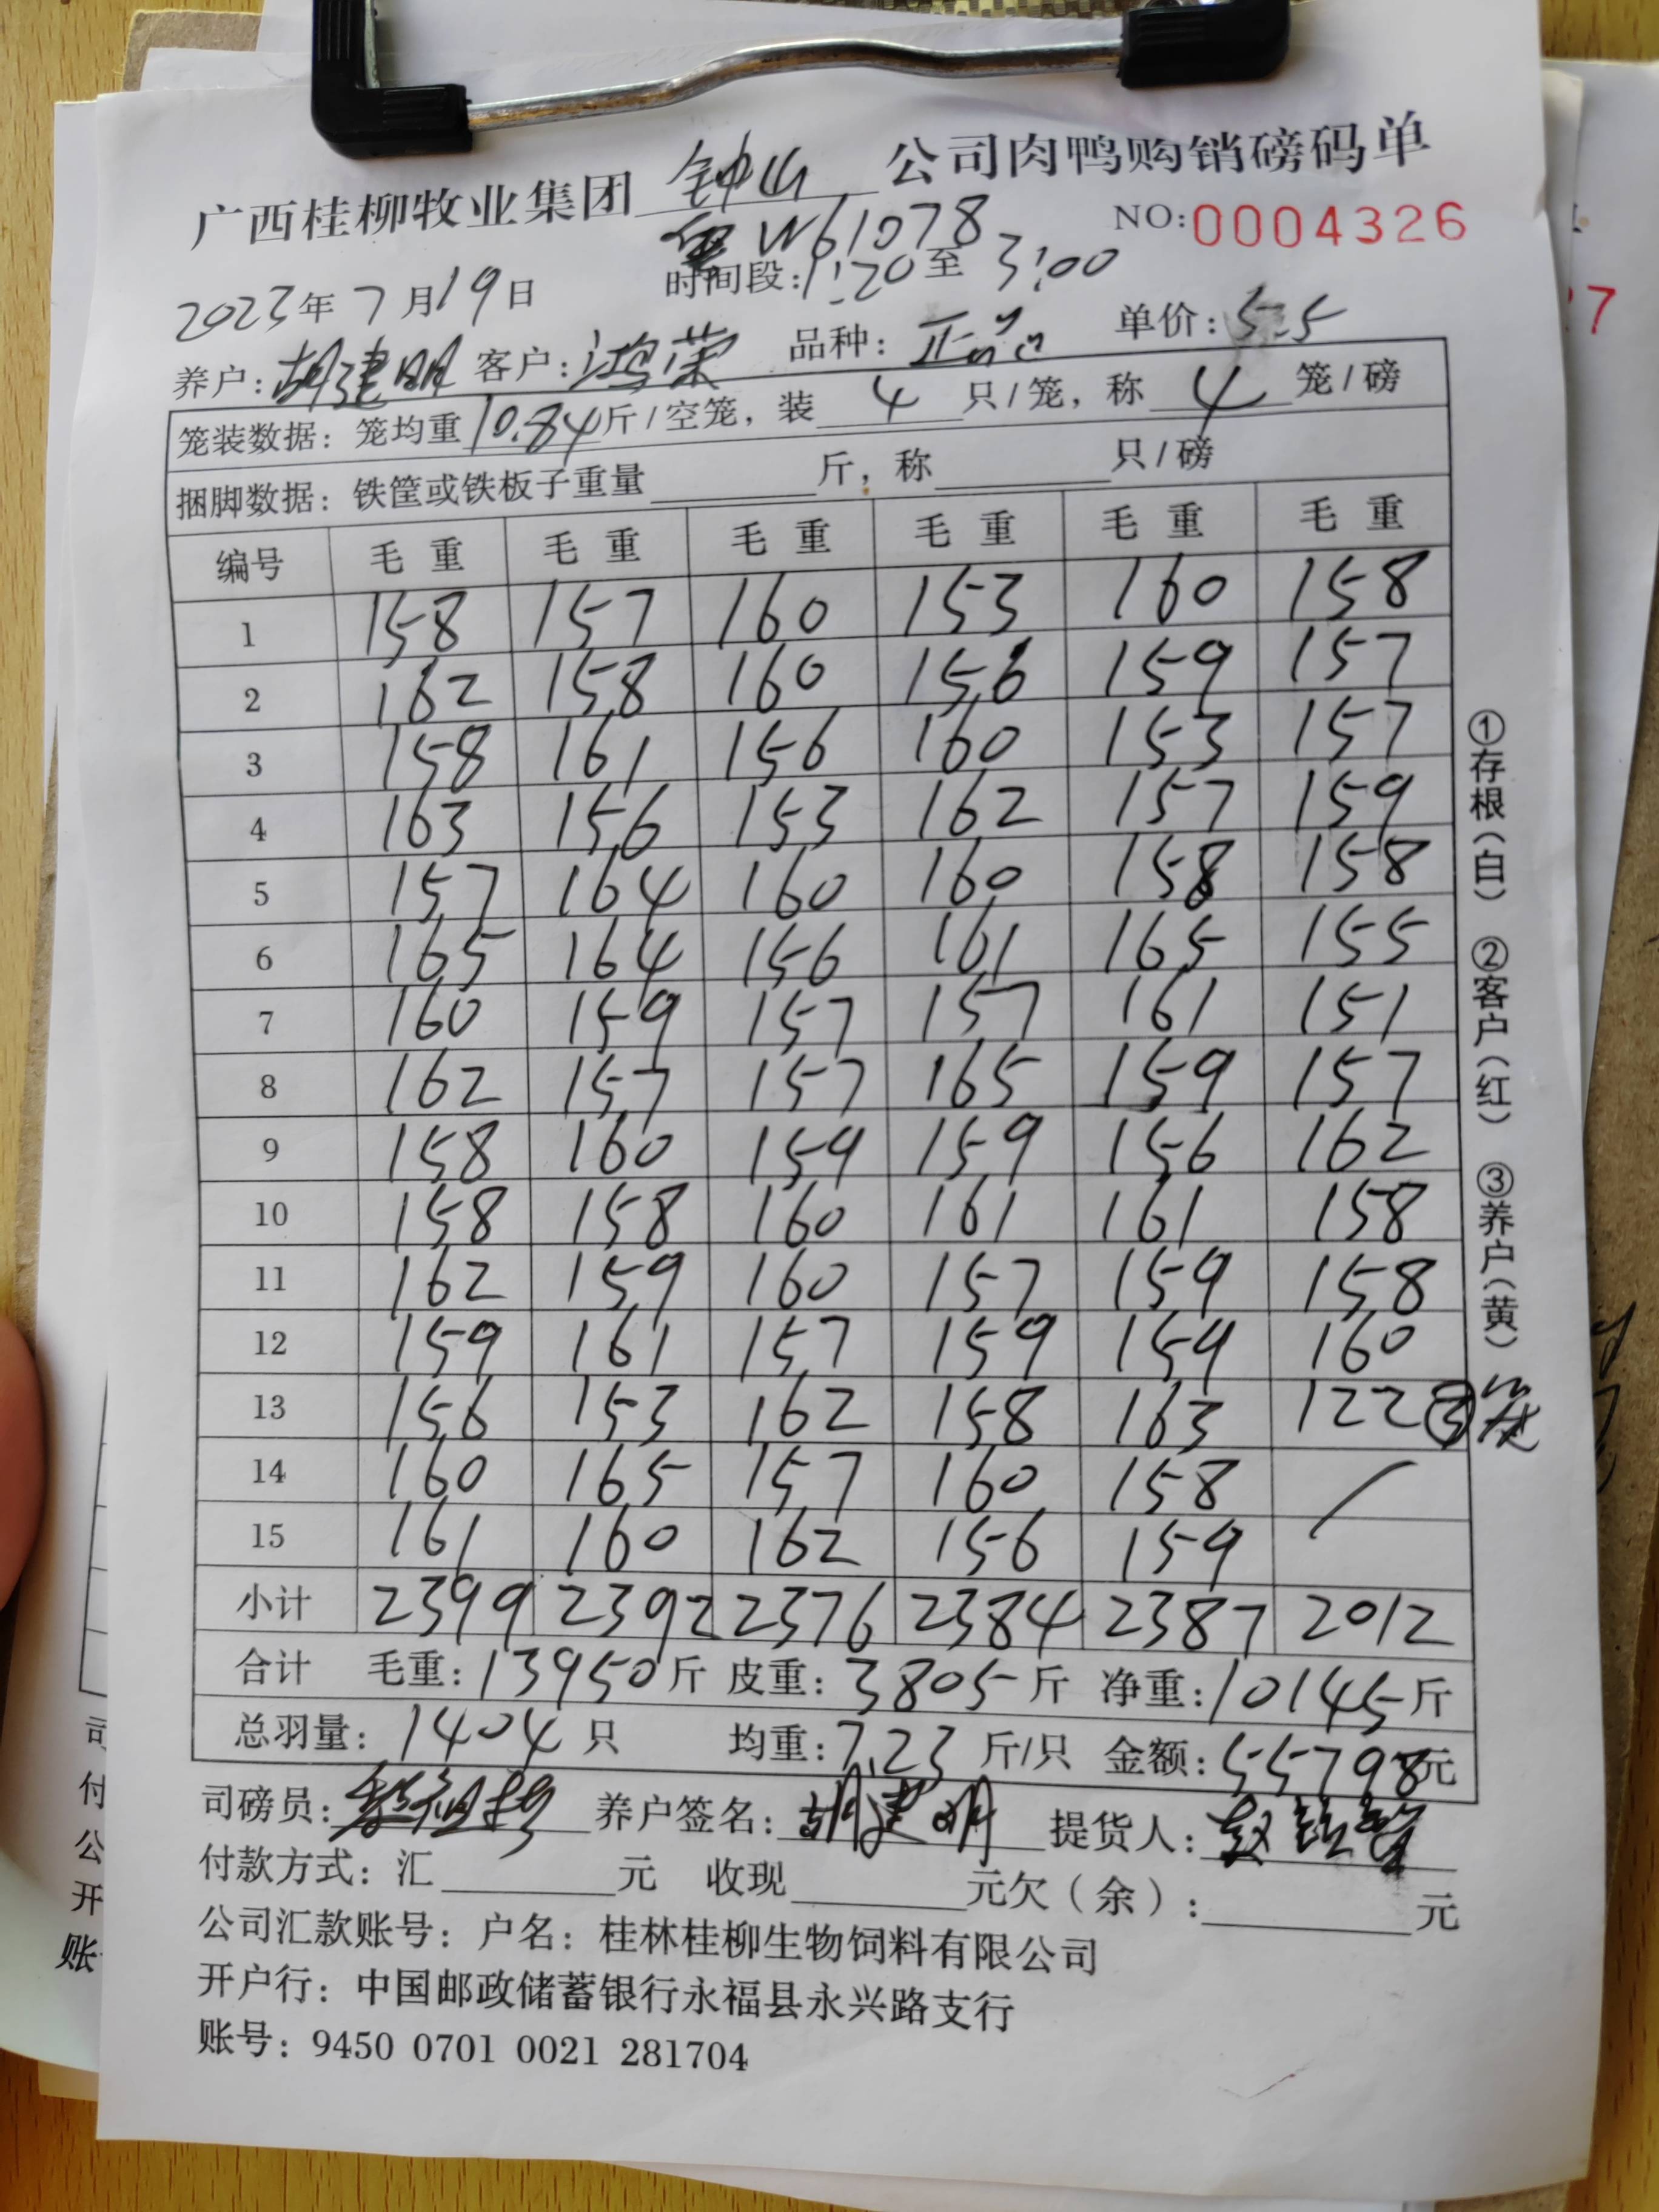 广西桂柳牧业集团 钟山 公司肉鸭购销磅码单
W61078 NO:0004326
2023年7月19日 时间段:1:20至3:00
养户:胡建明 客户:鸿荣 品种:正品 单价:5.5
笼装数据:笼均重10.84斤/空笼,装4只/笼,称4笼/磅
捆脚数据:铁筐或铁板子重量 斤,称 只/磅
编号 毛重 毛重 毛重 毛重 毛重 毛重
1 158 157 160 153 160 158
2 162 158 160 156 159 157
3 158 161 156 160 153 157
4 163 156 153 162 157 159
5 157 164 160 160 158 158
6 165 164 156 161 165 155
7 160 159 157 157 161 151
8 162 157 157 165 159 157
9 158 160 159 159 156 162
10 158 158 160 161 161 158
11 162 159 160 157 159 158
12 159 161 157 159 159 160
13 156 153 162 158 163 122 ③笼
14 160 165 157 160 158
15 161 160 162 156 159
小计 2399 2392 2376 2384 2387 2012
合计 毛重:13950斤 皮重:3805斤 净重:10145斤
总羽量:1404只 均重:7.23斤/只 金额:55798元
司磅员: 养户签名:胡建明 提货人:
付款方式:汇 元 收现 元欠(余): 元
公司汇款账号:户名:桂林桂柳生物饲料有限公司
开户行:中国邮政储蓄银行永福县永兴路支行
账号:9450 0701 0021 281704
①存根(白) ②客户(红) ③养户(黄)